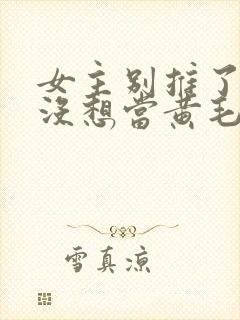 女主別推了
沒想當黃毛
雪真涼